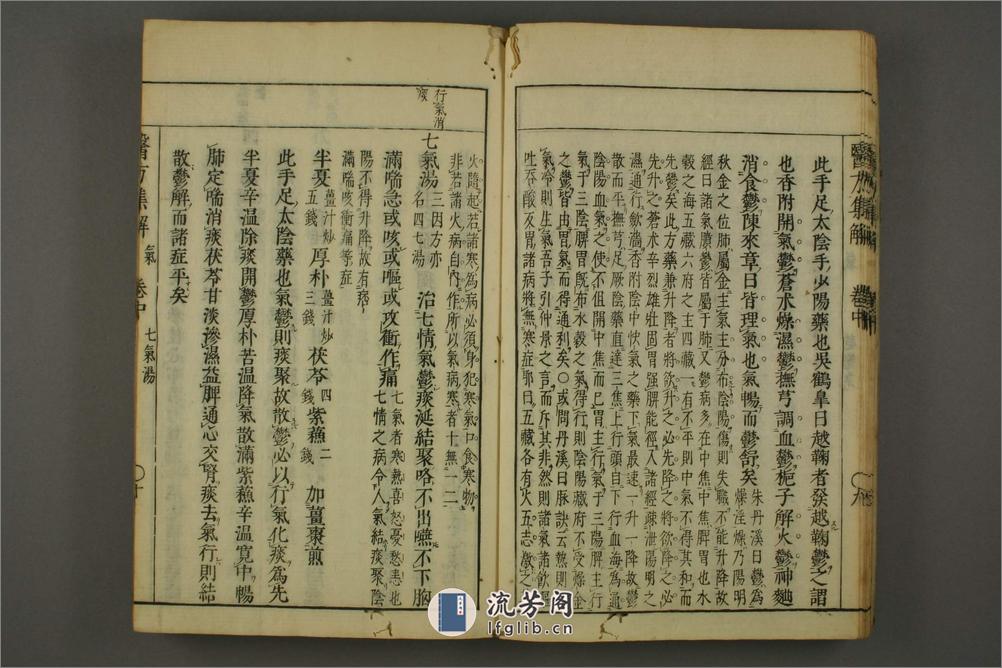 此手足太陰手少陽藥也吳鶴皐曰越鞠者發越鞠鬱之謂
也香附開氣鬱蒼术燥濕鬱撫芎調血鬱梔子解火鬱神麯
消食鬱陳來章曰皆理氣也氣暢而鬱舒矣
朱丹溪曰鬱為
燥淫燥乃陽明
秋金之位肺屬金主氣主分布陰陽傷則失職不能升降故
經曰諸氣膹鬱皆屬于肺又鬱病多在中焦中焦脾胃也水
穀之海五藏六府之主四藏一有不平則中氣不得其和而
先鬱矣此方藥兼升降者將欲升之必先降之將欲降之必
先升之蒼术辛烈雄壯固胃強脾能徑入諸經疎泄陽明之
濕通行飲濇香附陰中快氣之藥下氣最速一升一降故鬱
散而平撫芎足厥陰藥直達三焦上行頭目下行血海為通
陰陽血氣之使不但開中焦而已胃主行氣于三陽脾主行
氣于三陰脾胃既布水穀之氣得行則陰陽藏府不受燥金
之鬱皆由胃氣而得通利矣〇或問丹溪曰脉訣云熱則
氣冷則生氣吾子引仲景之言而斥其非然則諸氣諸飲嘔
吐吞酸反胃諸病將無寒症耶曰五藏各有火五志激之
醫方集解
卷中
九
火隨起若諸寒為病必須身犯寒氣口食寒物
非若諸火病自內作所以氣病寒者十無一二
行氣消
痰
七氣湯
三因方亦
名四七湯
治七情氣鬱痰涎結聚咯不出嚥不下胸
滿喘急或咳或嘔或攻衝作痛
七氣者寒熱喜怒憂愁恚也
七情之病令人氣結痰聚陰
陽不得升降故有痞
滿喘咳衝痛等症
半夏
薑汁炒
五錢
厚朴
薑汁炒
三錢
茯苓
四
錢
紫蘓
二
錢
加薑棗煎
此手足太陰藥也氣鬱則痰聚故散鬱必以行氣化痰為先
半夏辛温除痰開鬱厚朴苦温降氣散滿紫蘓辛温寛中暢
肺定喘消痰茯苓甘淡滲濕益脾通心交腎痰去氣行則結
散鬱解而諸症平矣
醫方集解
氣
卷中
七氣湯
十
流芳阁
lfglib.cn